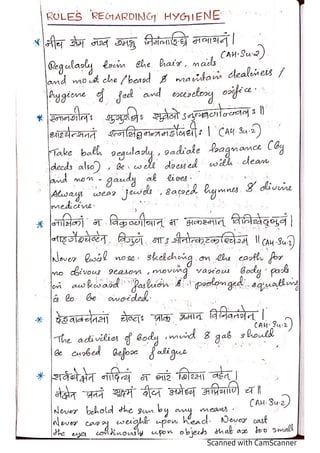 RULES REGARDING HYGIENE
* नीच रोम नख श्मश्रु निर्मलाङ्घ्रि मलायनः |
(AH.Su-2)
Regularly trim the hair, nails
and moustache/beard & maintain cleanliness/
hygiene of feet and excretory orifice.
* स्नानशीलः सुसुरभिः सुवेषो ऽनुल्बणोज्ज्वलः ॥
(AH Su-2)
Take bath regularly, radiate fragnance (By
deeds also), Be well dressed with clean
and non-gaudy at tires.
Always wear jewels, sacred hymnes & divine
medicine.
* नासिकां न विकुष्णीयात् न अकस्मात् विलिखेद्भुवं |
(AH Su-2)
Never twist nose, sketching on the earth for
no obivous reason, moving various body parts
in awkward fashion & prolonged squatting
is to be avoided.
* देहवाक्चेतसां चेष्टाः प्राक् श्रमात् विनिवर्तयेत् |
(AH.Su-2)
The activities of body, mind & gab should
be curbed before fatigue.
* न भारं शिरसा वहेत् |
(AH.Su-2)
Never behold the sun by any means.
Never carry weight upon head. Never cast
the eyes continously upon objects that are too small
Scanned with CamScanner